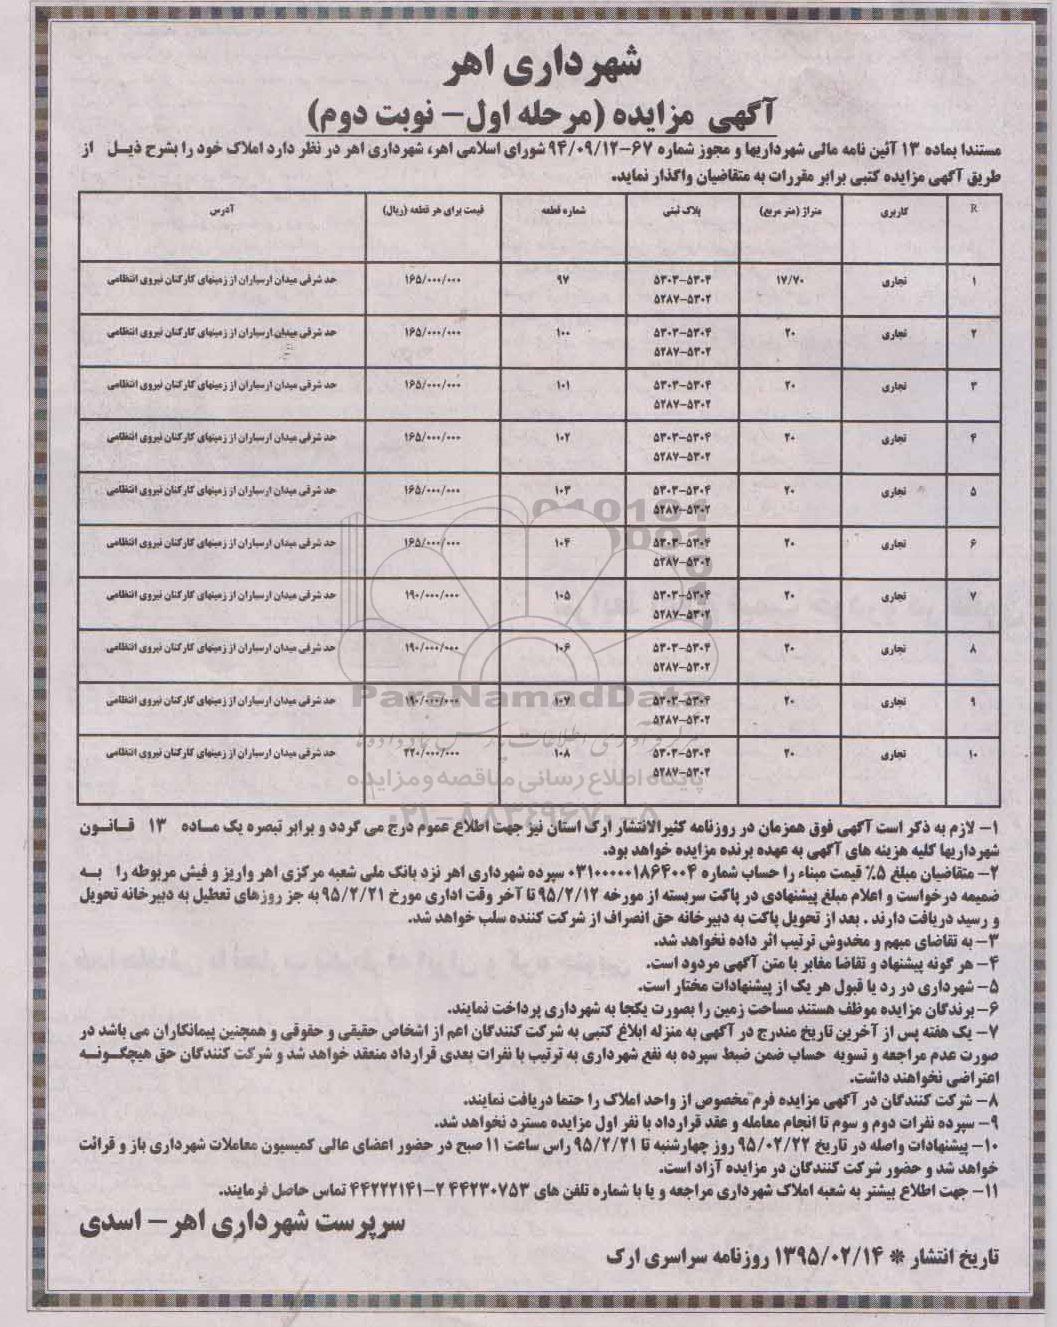 شهرداری اهر
آگهی مزایده (مرحله اول- نوبت دوم)
مستندا بماده ۱۳ آئین نامه مالی شهرداریها و مجوز شماره ۶۷-۹۴/۰۹/۱۲ شورای اسلامی اهر، شهرداری اهر در نظر دارد املاک خود را بشرح ذیل از
طریق آگهی مزایده کتبی برابر مقررات به متقاضیان واگذار نماید.
R کاربری متراژ (متر مربع) پلاک ثبتی شماره قطعه قیمت برای هر قطعه (ریال) آدرس
۱ تجاری ۱۷/۷۰ ۵۳۰۳-۵۳۰۴ ۹۷ ۱۶۵/۰۰۰/۰۰۰ حد شرقی میدان ارسباران از زمینهای کارکنان نیروی انتظامی
۵۲۸۷-۵۳۰۲
۲ تجاری ۲۰ ۵۳۰۳-۵۳۰۴ ۱۰۰ ۱۶۵/۰۰۰/۰۰۰ حد شرقی میدان ارسباران از زمینهای کارکنان نیروی انتظامی
۵۲۸۷-۵۳۰۲
۳ تجاری ۲۰ ۵۳۰۳-۵۳۰۴ ۱۰۱ ۱۶۵/۰۰۰/۰۰۰ حد شرقی میدان ارسباران از زمینهای کارکنان نیروی انتظامی
۵۲۸۷-۵۳۰۲
۴ تجاری ۲۰ ۵۳۰۳-۵۳۰۴ ۱۰۲ ۱۶۵/۰۰۰/۰۰۰ حد شرقی میدان ارسباران از زمینهای کارکنان نیروی انتظامی
۵۲۸۷-۵۳۰۲
۵ تجاری ۲۰ ۵۳۰۳-۵۳۰۴ ۱۰۳ ۱۶۵/۰۰۰/۰۰۰ حد شرقی میدان ارسباران از زمینهای کارکنان نیروی انتظامی
۵۲۸۷-۵۳۰۲
۶ تجاری ۲۰ ۵۳۰۳-۵۳۰۴ ۱۰۴ ۱۶۵/۰۰۰/۰۰۰ حد شرقی میدان ارسباران از زمینهای کارکنان نیروی انتظامی
۵۲۸۷-۵۳۰۲
۷ تجاری ۲۰ ۵۳۰۳-۵۳۰۴ ۱۰۵ ۱۹۰/۰۰۰/۰۰۰ حد شرقی میدان ارسباران از زمینهای کارکنان نیروی انتظامی
۵۲۸۷-۵۳۰۲
۸ تجاری ۲۰ ۵۳۰۳-۵۳۰۴ ۱۰۶ ۱۹۰/۰۰۰/۰۰۰ حد شرقی میدان ارسباران از زمینهای کارکنان نیروی انتظامی
۵۲۸۷-۵۳۰۲
۹ تجاری ۲۰ ۵۳۰۳-۵۳۰۴ ۱۰۷ ۱۹۰/۰۰۰/۰۰۰ حد شرقی میدان ارسباران از زمینهای کارکنان نیروی انتظامی
۵۲۸۷-۵۳۰۲
۱۰ تجاری ۲۰ ۵۳۰۳-۵۳۰۴ ۱۰۸ ۲۲۰/۰۰۰/۰۰۰ حد شرقی میدان ارسباران از زمینهای کارکنان نیروی انتظامی
۵۲۸۷-۵۳۰۲
ParsNamadData
پایگاه اطلاع رسانی مناقصه و مزایده
۰۲۱-۸۸۳۴۹۶۷۰-۵
۱- لازم به ذکر است آگهی فوق همزمان در روزنامه کثیرالانتشار ارک استان نیز جهت اطلاع عموم درج می گردد و برابر تبصره یک ماده ۱۳ قانون
شهرداریها کلیه هزینه های آگهی به عهده برنده مزایده خواهد بود.
۲- متقاضیان مبلغ ۵٪ قیمت مبناء را حساب شماره ۰۳۱۰۰۰۰۰۱۸۶۴۰۰۴ سپرده شهرداری اهر نزد بانک ملی شعبه مرکزی اهر واریز و فیش مربوطه را به
ضمیمه درخواست و اعلام مبلغ پیشنهادی در پاکت سربسته از مورخه ۹۵/۲/۱۲ تا آخر وقت اداری مورخ ۹۵/۲/۲۱ به جز روزهای تعطیل به دبیرخانه تحویل
و رسید دریافت دارند. بعد از تحویل پاکت به دبیرخانه حق انصراف از شرکت کننده سلب خواهد شد.
۳- به تقاضای مبهم و مخدوش ترتیب اثر داده نخواهد شد.
۴- هر گونه پیشنهاد و تقاضا مغایر با متن آگهی مردود است.
۵- شهرداری در رد یا قبول هر یک از پیشنهادات مختار است.
۶- برندگان مزایده موظف هستند مساحت زمین را بصورت یکجا به شهرداری پرداخت نمایند.
۷- یک هفته پس از آخرین تاریخ مندرج در آگهی به منزله ابلاغ کتبی به شرکت کنندگان اعم از اشخاص حقیقی و حقوقی و همچنین پیمانکاران می باشد در
صورت عدم مراجعه و تسویه حساب ضمن ضبط سپرده به نفع شهرداری به ترتیب با نفرات بعدی قرارداد منعقد خواهد شد و شرکت کنندگان حق هیچگونه
اعتراضی نخواهند داشت.
۸- شرکت کنندگان در آگهی مزایده فرم مخصوص از واحد املاک را حتما دریافت نمایند.
۹- سپرده نفرات دوم و سوم تا انجام معامله و عقد قرارداد با نفر اول مزایده مسترد نخواهد شد.
۱۰- پیشنهادات واصله در تاریخ ۹۵/۰۲/۲۲ روز چهارشنبه تا ۹۵/۲/۲۱ راس ساعت ۱۱ صبح در حضور اعضای عالی کمیسیون معاملات شهرداری باز و قرائت
خواهد شد و حضور شرکت کنندگان در مزایده آزاد است.
۱۱- جهت اطلاع بیشتر به شعبه املاک شهرداری مراجعه و یا با شماره تلفن های ۴۴۲۳۰۷۵۳ ۲-۴۴۲۲۲۱۴۱ تماس حاصل فرمایند.
سرپرست شهرداری اهر- اسدی
تاریخ انتشار * ۱۳۹۵/۰۲/۱۴ روزنامه سراسری ارک